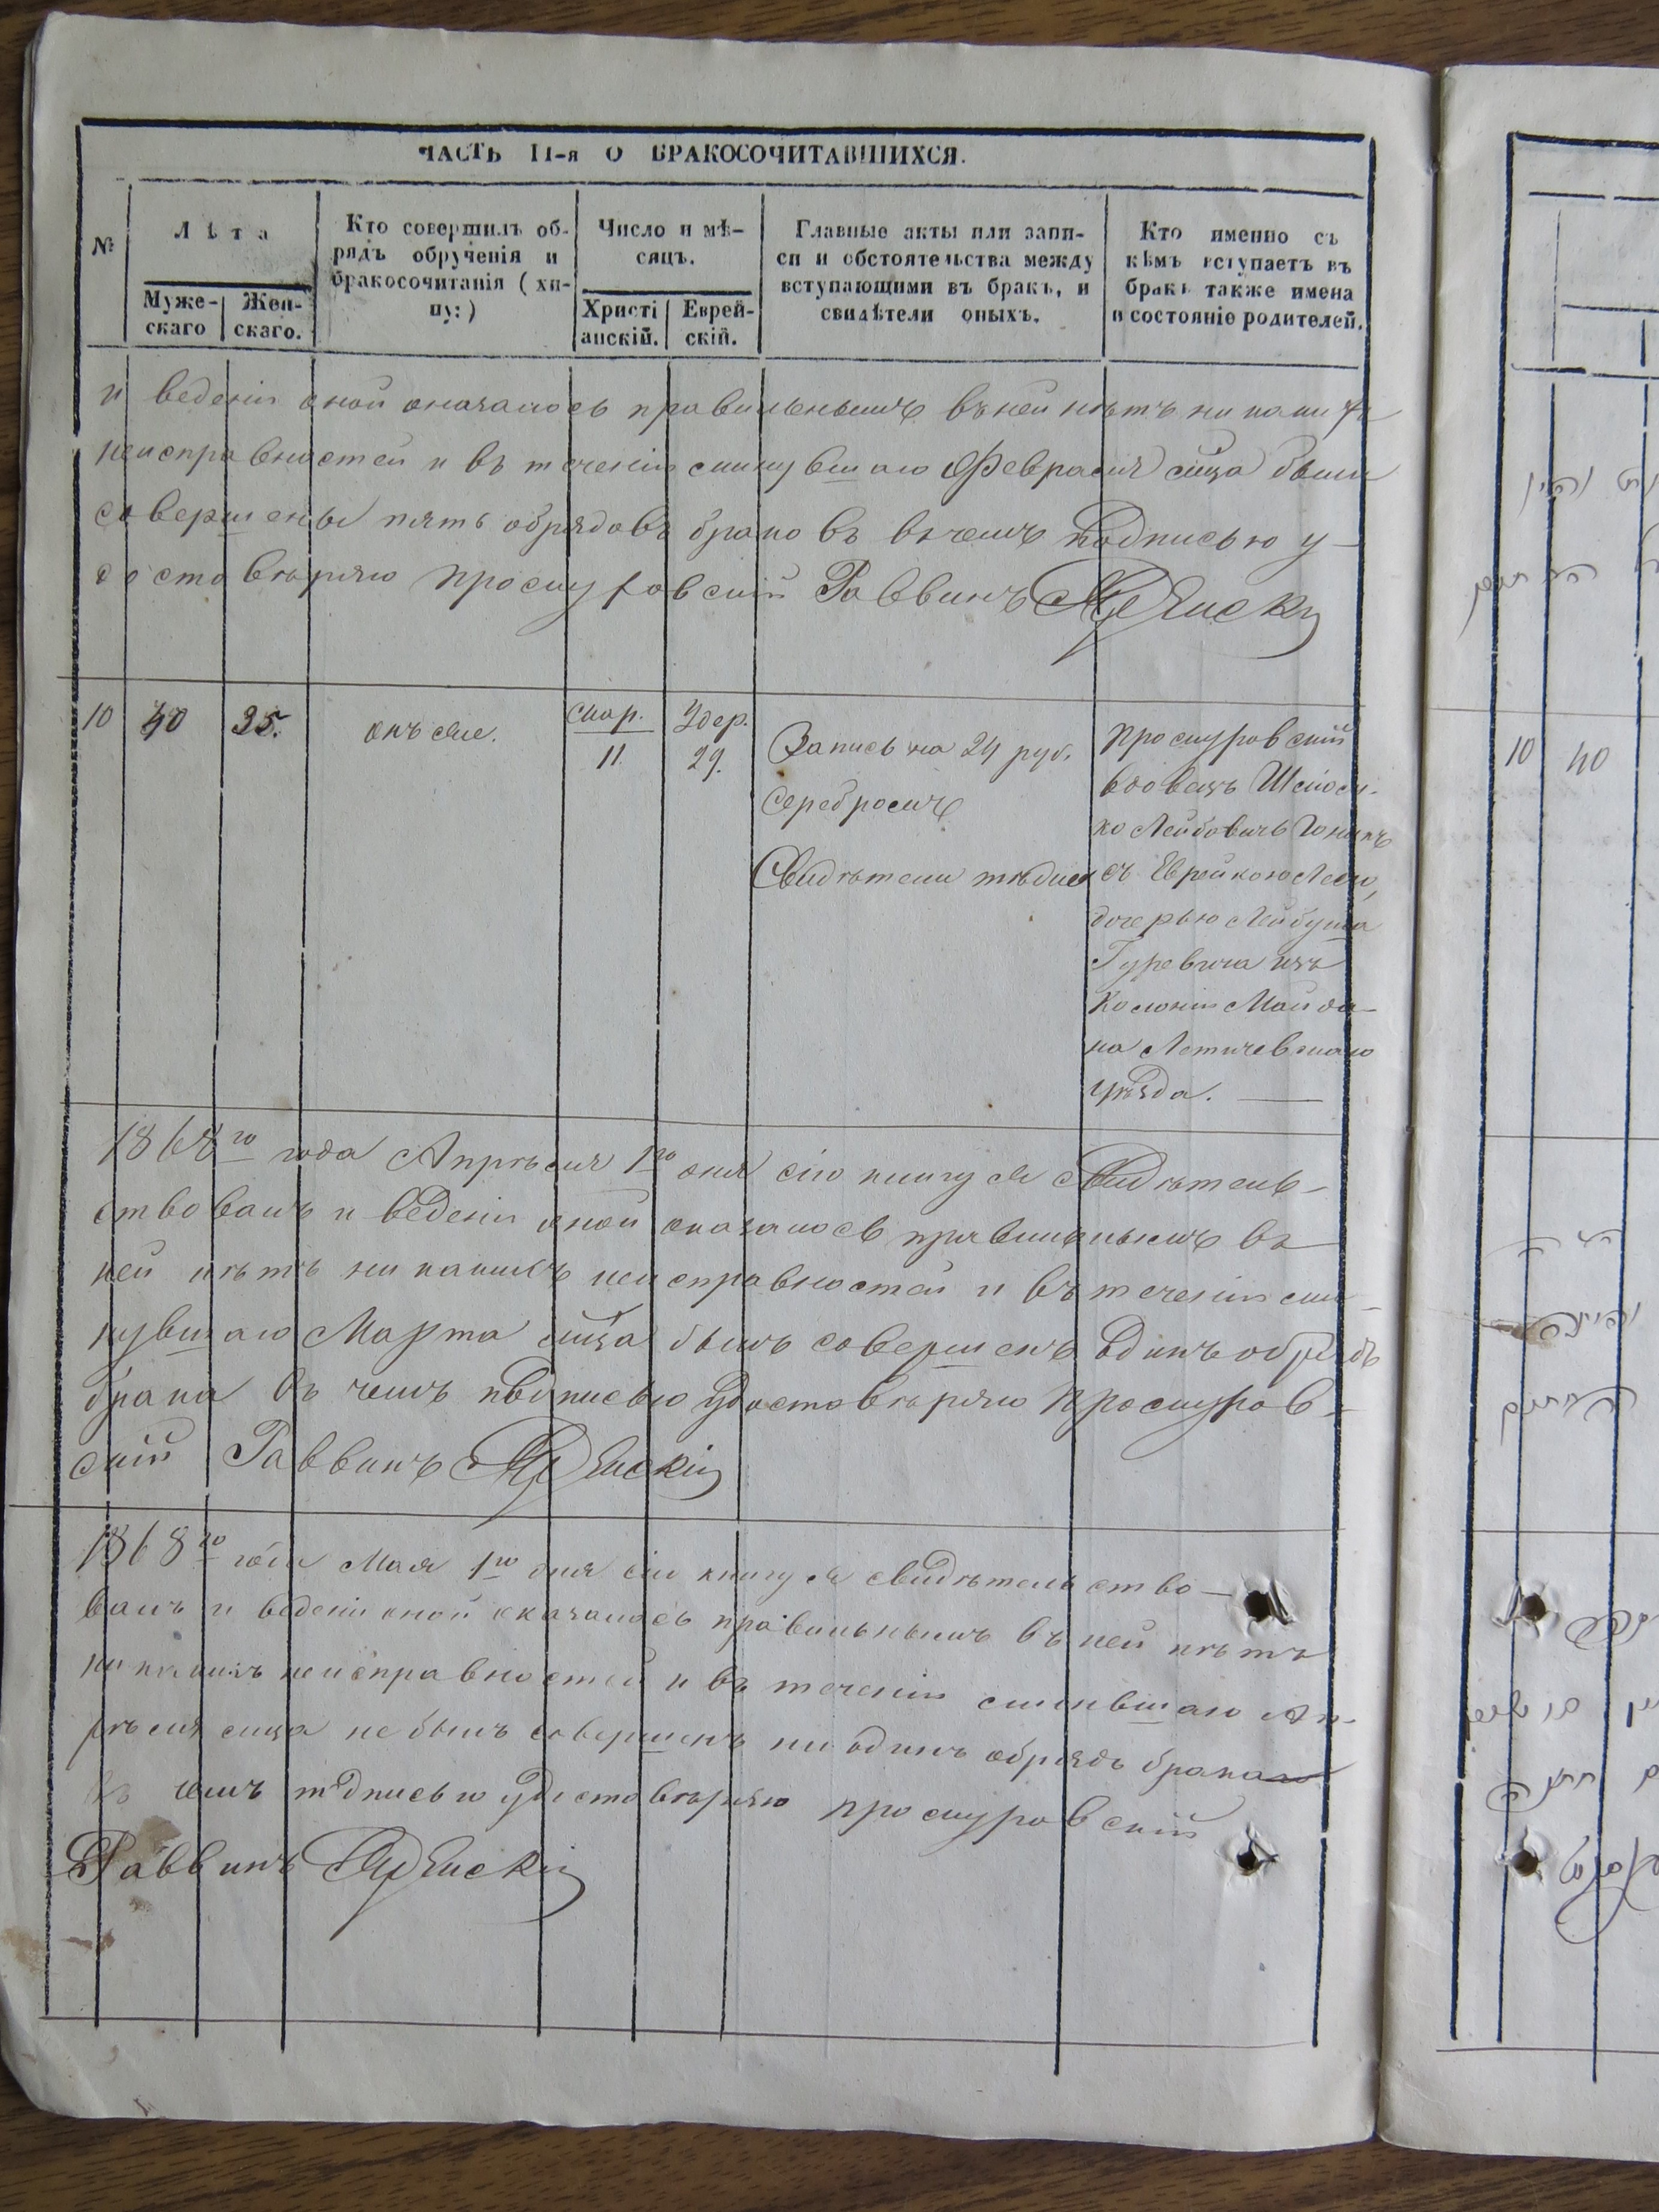 ЧАСТЬ II-я О БРАКОСОЧИТАВШИХСЯ.
№
Лѣта
Муже-
скаго
Жен-
скаго.
Кто совершилъ об-
рядъ обрученія и
бракосочитанія (хи-
пу:)
Число и мѣ-
сяцъ.
Христі
анскій.
Еврей-
скій.
Главные акты или запи-
си и обстоятельства между
вступающими въ бракъ, и
свидѣтели оныхъ.
Кто именно съ
кѣмъ вступаетъ въ
бракъ также имена
и состояніе родителей.
и веденіи оной оказалось правильнымъ въ ней нѣтъ ни какихъ
неисправностей и въ теченіи минувшаго Февраля мца были
совершены пять обрядовъ брако въ въ чемъ подписью у-
достовѣряю Проскуровскій Раввинъ
10
40
35.
онъ же.
Мар.
11.
Удер.
29.
Запись на 24 руб.
серебромъ
Свидѣтели тѣже
Проскуровскій
вдовецъ
ко Лейбовичъ
съ Еврейкою
дочерью Лейбуша
Гуревича изъ
Колоніи Майда-
на Летичевскаго
уѣзда.
1868го года Апрѣля 1го дня сію книгу я Свидѣтель-
ствовалъ и веденіи оной оказалось правильнымъ въ
ней нѣтъ ни какихъ неисправностей и въ теченіи ми-
нувшаго Марта мца былъ совершенъ одинъ обрядъ
брака въ чемъ подписью удостовѣряю Проскуров-
скій Раввинъ
1868го года Мая 1го дня сію книгу я свидѣтельство-
валъ и веденіи оной оказалось правильнымъ въ ней нѣтъ
ни какихъ неисправностей и въ теченіи минувшаго Ап-
рѣля мца не былъ совершенъ ни одинъ обрядъ брака
въ чемъ подписью удостовѣряю Проскуровскій
Раввинъ
10
40